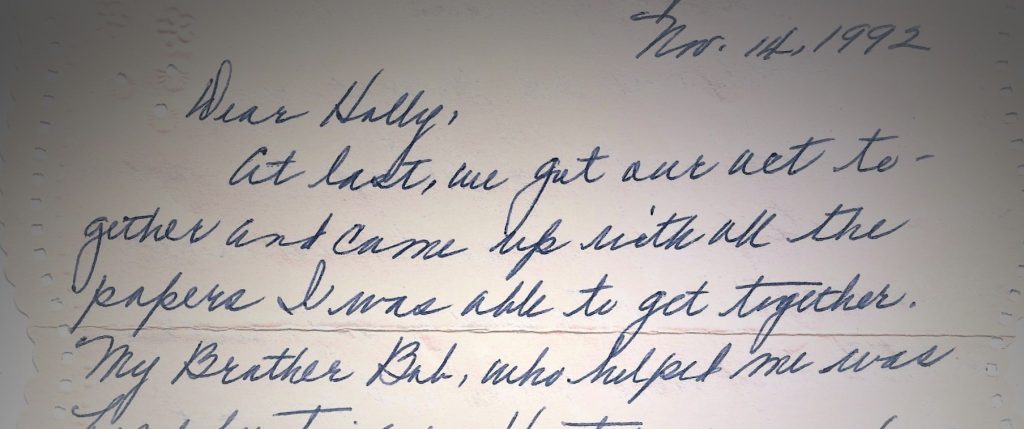 Nov. 14, 1992
Dear Holly,
At last, we got our act to-
gether and came up with all the
papers I was able to get together.
My Brother Bob, who helped me was